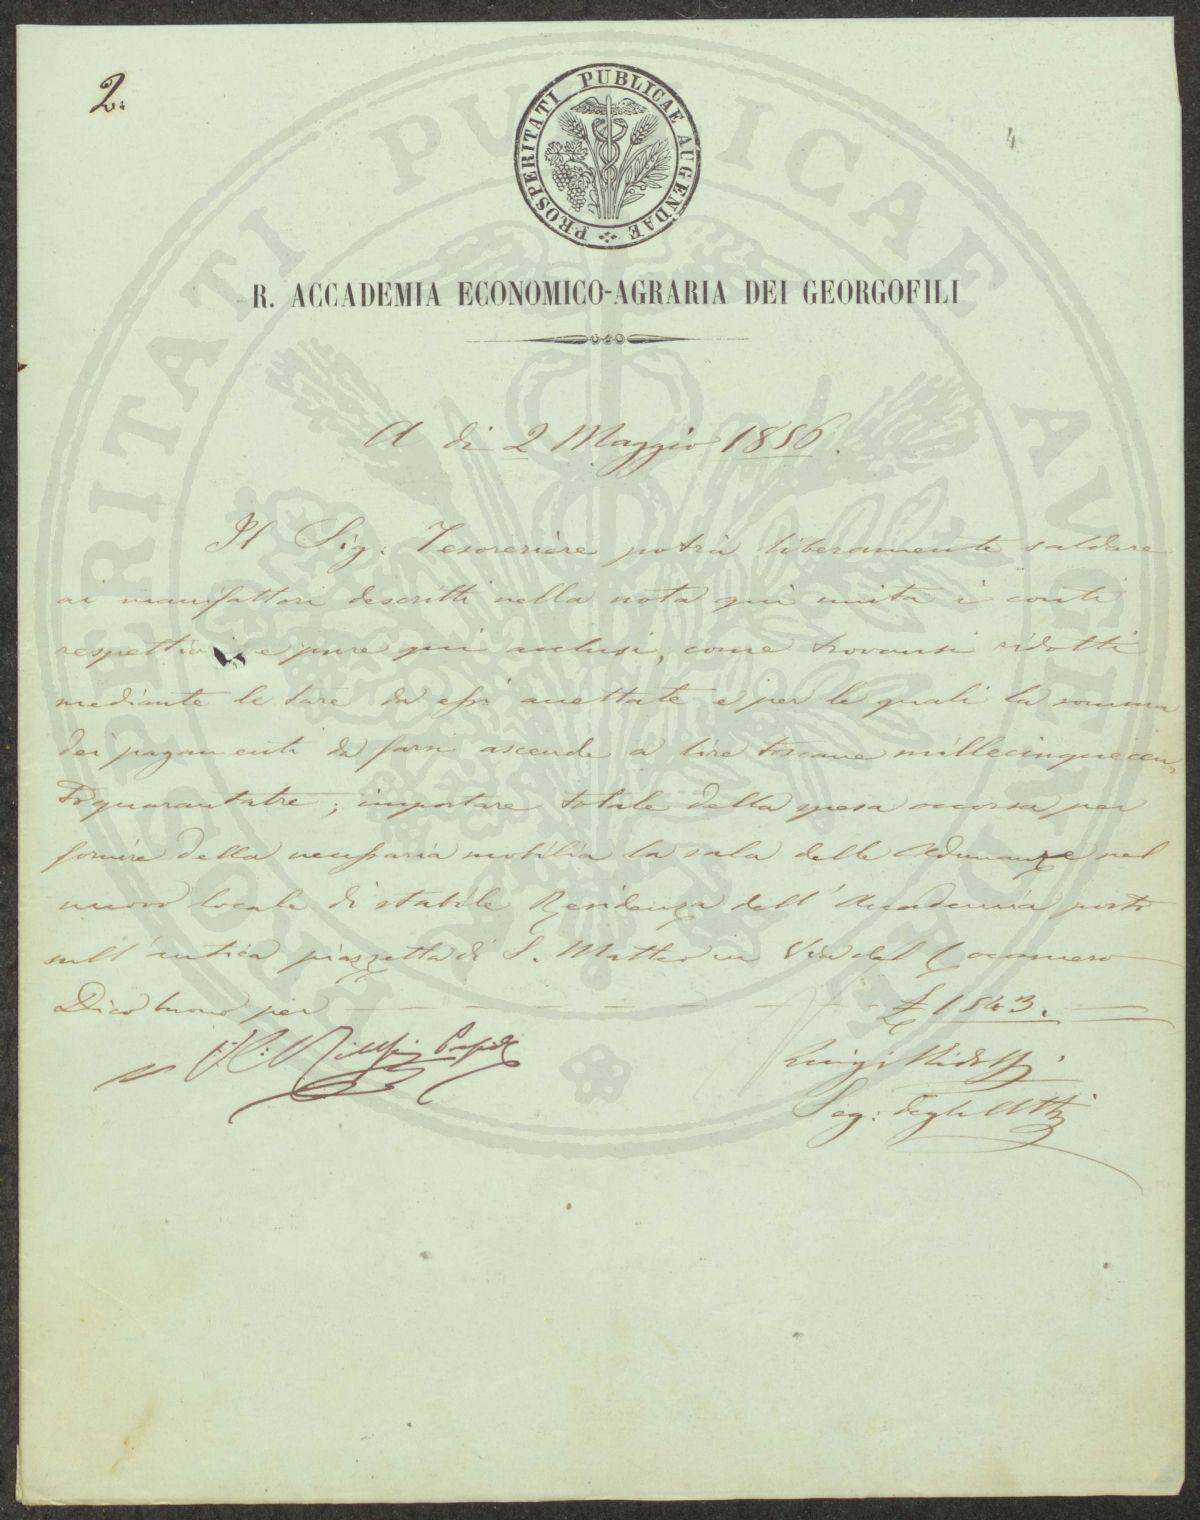 2.
4
PROSPERITATI PUBLICAE AUGENDAE
R. ACCADEMIA ECONOMICO-AGRARIA DEI GEORGOFILI
A di 2 Maggio 1856.
Il Sig: Tesoreriere potrà liberamente saldare
ai manifattori descritti nella nota qui unita i conti
respettivi e pure qui acclusi, come trovansi ridotti
mediante le tare da essi accettate e per le quali la somma
dei pagamenti da farsi ascende a lire toscane millecinquecen-
toquarantatre; importare totale della spesa occorsa per
fornire della necessaria mobilia la sala delle Adunanze nel
nuovo locale di stabile Residenza dell'Accademia posto
sull'antica piazzetta di S. Matteo in Via del Cocomero
Dico buono per £ 1543.
V. C. Ridolfi Presid
Luigi Ridolfi
Seg: degli Atti
PROSPERITATI PUBLICAE AUGENDAE